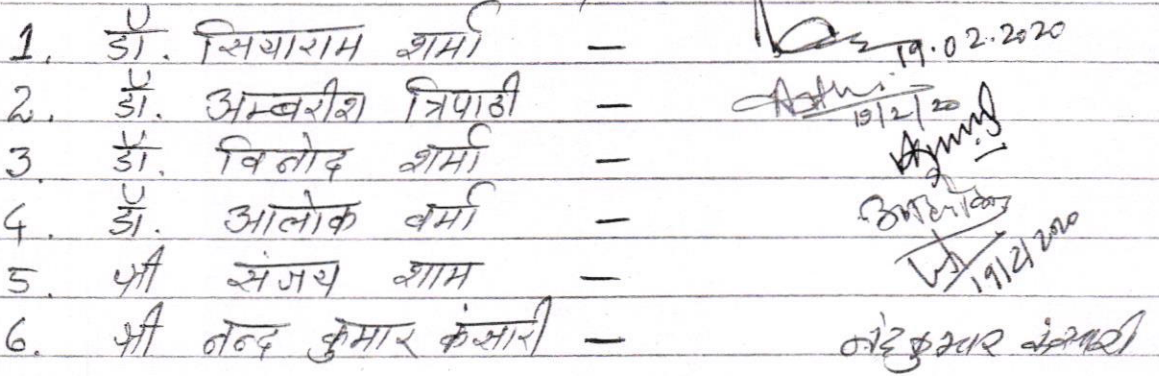 1. डॉ. सियाराम शर्मा — 19.02.2020
2. डॉ. अम्बरीश त्रिपाठी — 19/2/20
3. डॉ. विनोद शर्मा —
4. डॉ. आलोक वर्मा —
5. श्री संजय शाम — 19/2/2020
6. श्री नन्द कुमार कंसारी — नंदकुमार कंसारी